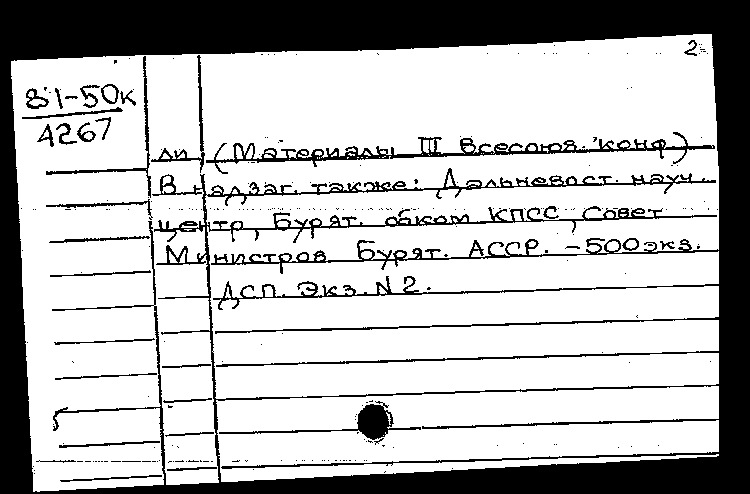 2
81-50к
4267
ли (Материалы III Всесоюз. конф.)
В надзаг. также: Дальневост. науч.
центр, Бурят. обком КПСС, Совет
Министров Бурят. АССР. - 500 экз.
ДСП. Экз. N 2.